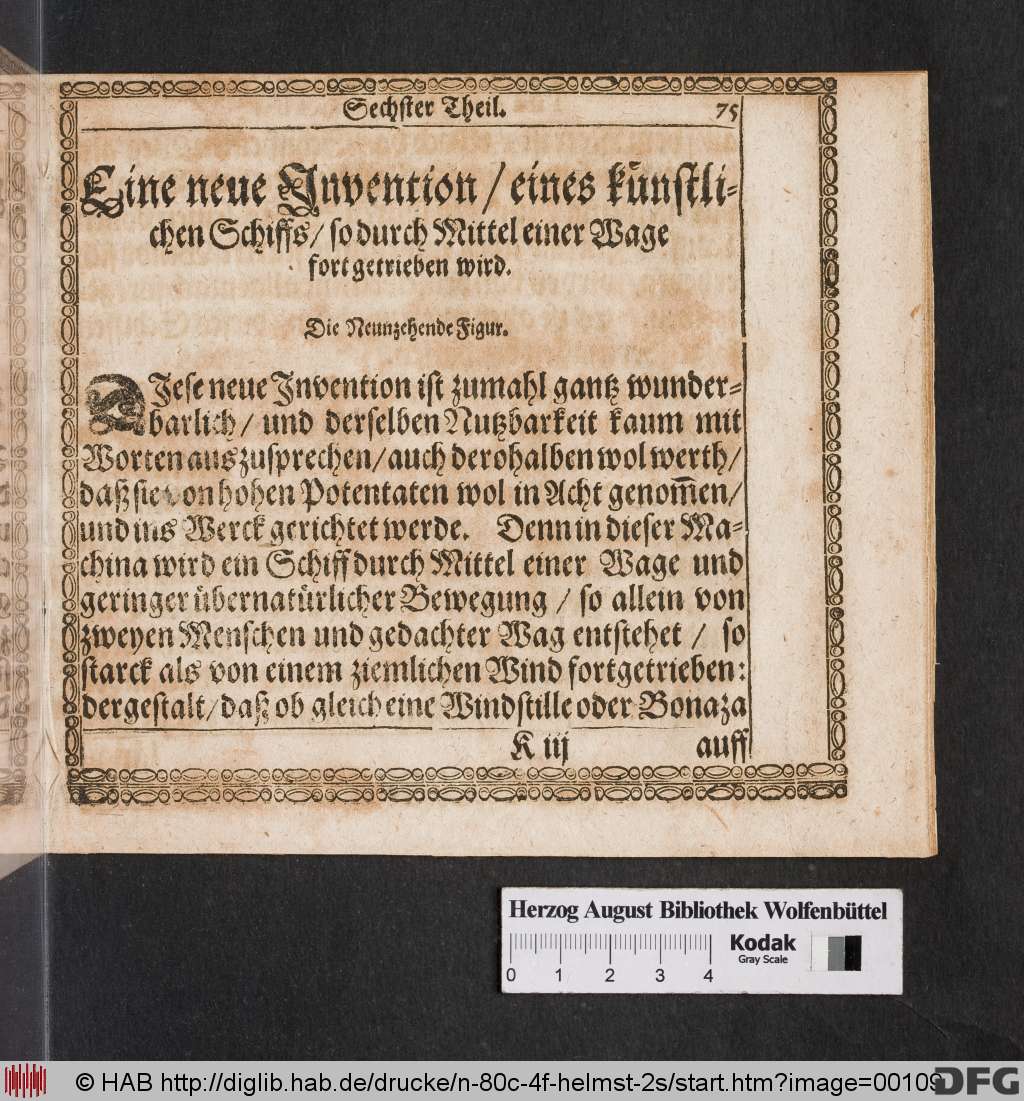 Sechster Theil. 75
Eine neue Invention / eines künstli-
chen Schiffs / so durch Mittel einer Wage
fortgetrieben wird.
Die Neunzehende Figur.
DIese neue Invention ist zumahl gantz wunder-
barlich / und derselben Nutzbarkeit kaum mit
Worten auszusprechen / auch derohalben wol werth /
daß sie von hohen Potentaten wol in Acht genom̃en /
und ins Werck gerichtet werde. Denn in dieser Ma-
china wird ein Schiff durch Mittel einer Wage und
geringer übernatürlicher Bewegung / so allein von
zweyen Menschen und gedachter Wag entstehet / so
starck als von einem ziemlichen Wind fortgetrieben:
dergestalt / daß ob gleich eine Windstille oder Bonaza
K iij auff
Herzog August Bibliothek Wolfenbüttel
Kodak
Gray Scale
0 1 2 3 4
© HAB http://diglib.hab.de/drucke/n-80c-4f-helmst-2s/start.htm?image=00109
DFG